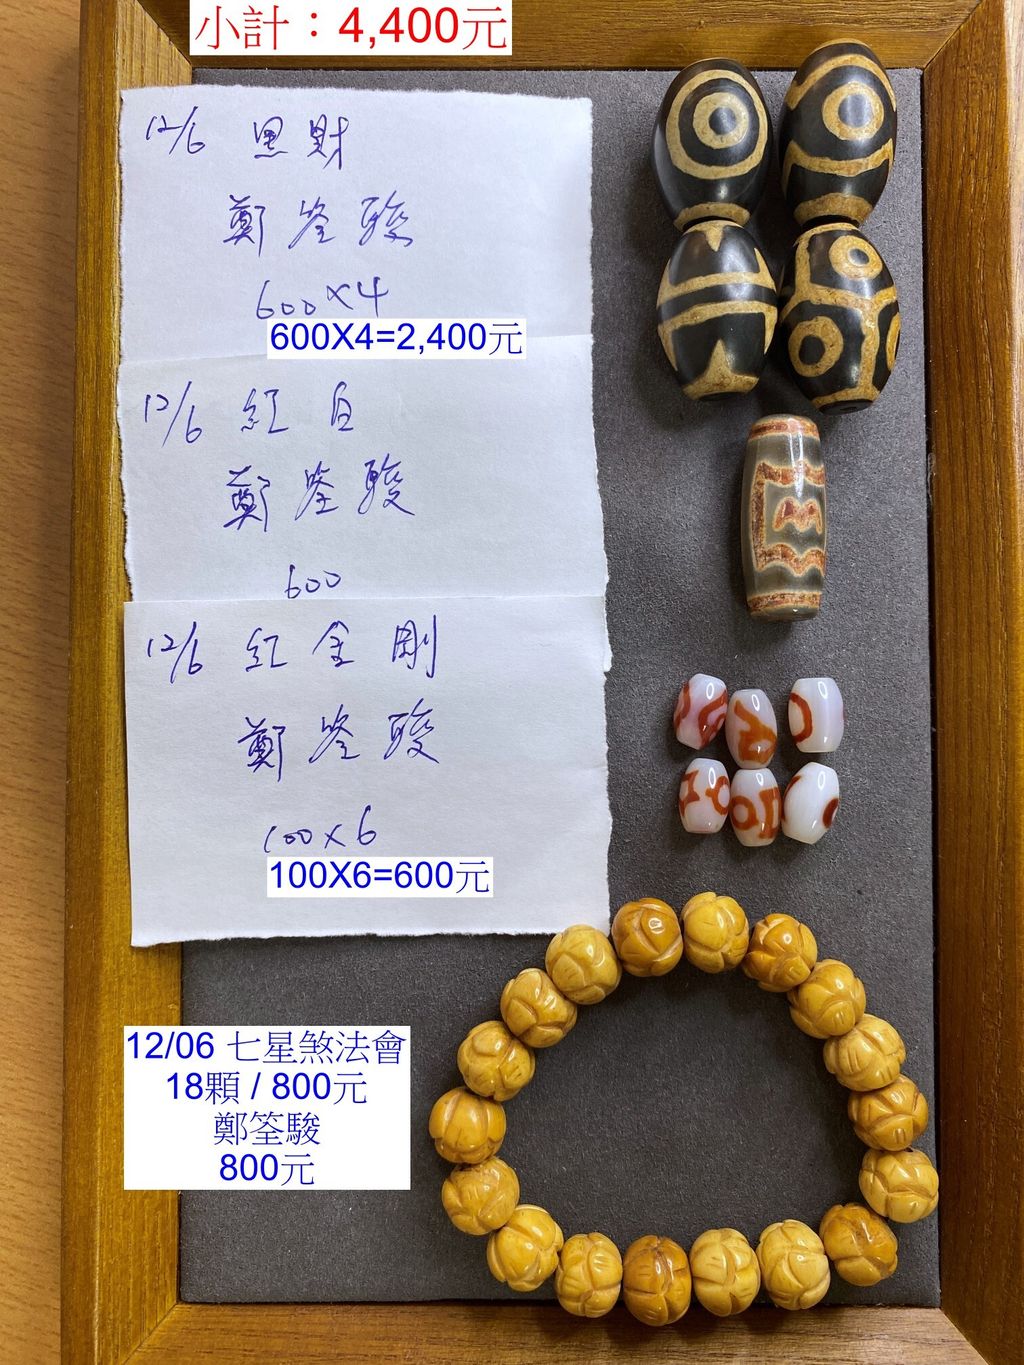 小計：4,400元
12/6 黑財
鄭筌駿
600x4
600X4=2,400元
12/6 紅白
鄭筌駿
600
12/6 紅金剛
鄭筌駿
100x6
100X6=600元
12/06 七星煞法會
18顆 / 800元
鄭筌駿
800元